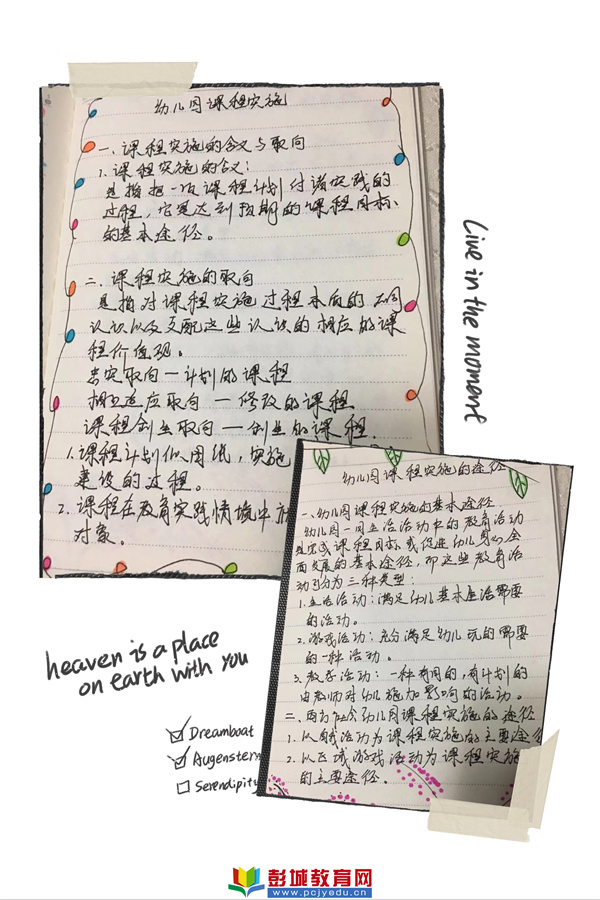 幼儿园课程实施
一、课程实施的含义与取向
1.课程实施的含义：
是指把一项课程计划付诸实践的
过程，它是达到预期的课程目标
的基本途径。
二、课程实施的取向
是指对课程实施过程本质的不同
认识以及支配这些认识的相应的课
程价值观。
忠实取向—计划的课程
相互适应取向—修改的课程
课程创生取向—创生的课程.
1.课程计划似图纸，实施
建设的过程。
2.课程在教育实践情境中
对象。
Live in the moment
幼儿园课程实施的途径
一、幼儿园课程实施的基本途径
幼儿园一日生活活动中的教育活动
是完成课程目标或促进幼儿身心全
面发展的基本途径，而这些教育活
动可分为三种类型：
1.生活活动：满足幼儿基本生活需要
的活动。
2.游戏活动：充分满足幼儿玩的需要
的一种活动。
3.教学活动：一种有目的，有计划的
由教师对幼儿施加影响的活动。
二、西方社会幼儿园课程实施的途径
1.从自我活动为课程实施的主要途径
2.以区域游戏活动为课程实施
的主要途径.
heaven is a place
on earth with you
Dreamboat
Augenstern
Serendipity
彭城教育网
www.pcjyedu.cn